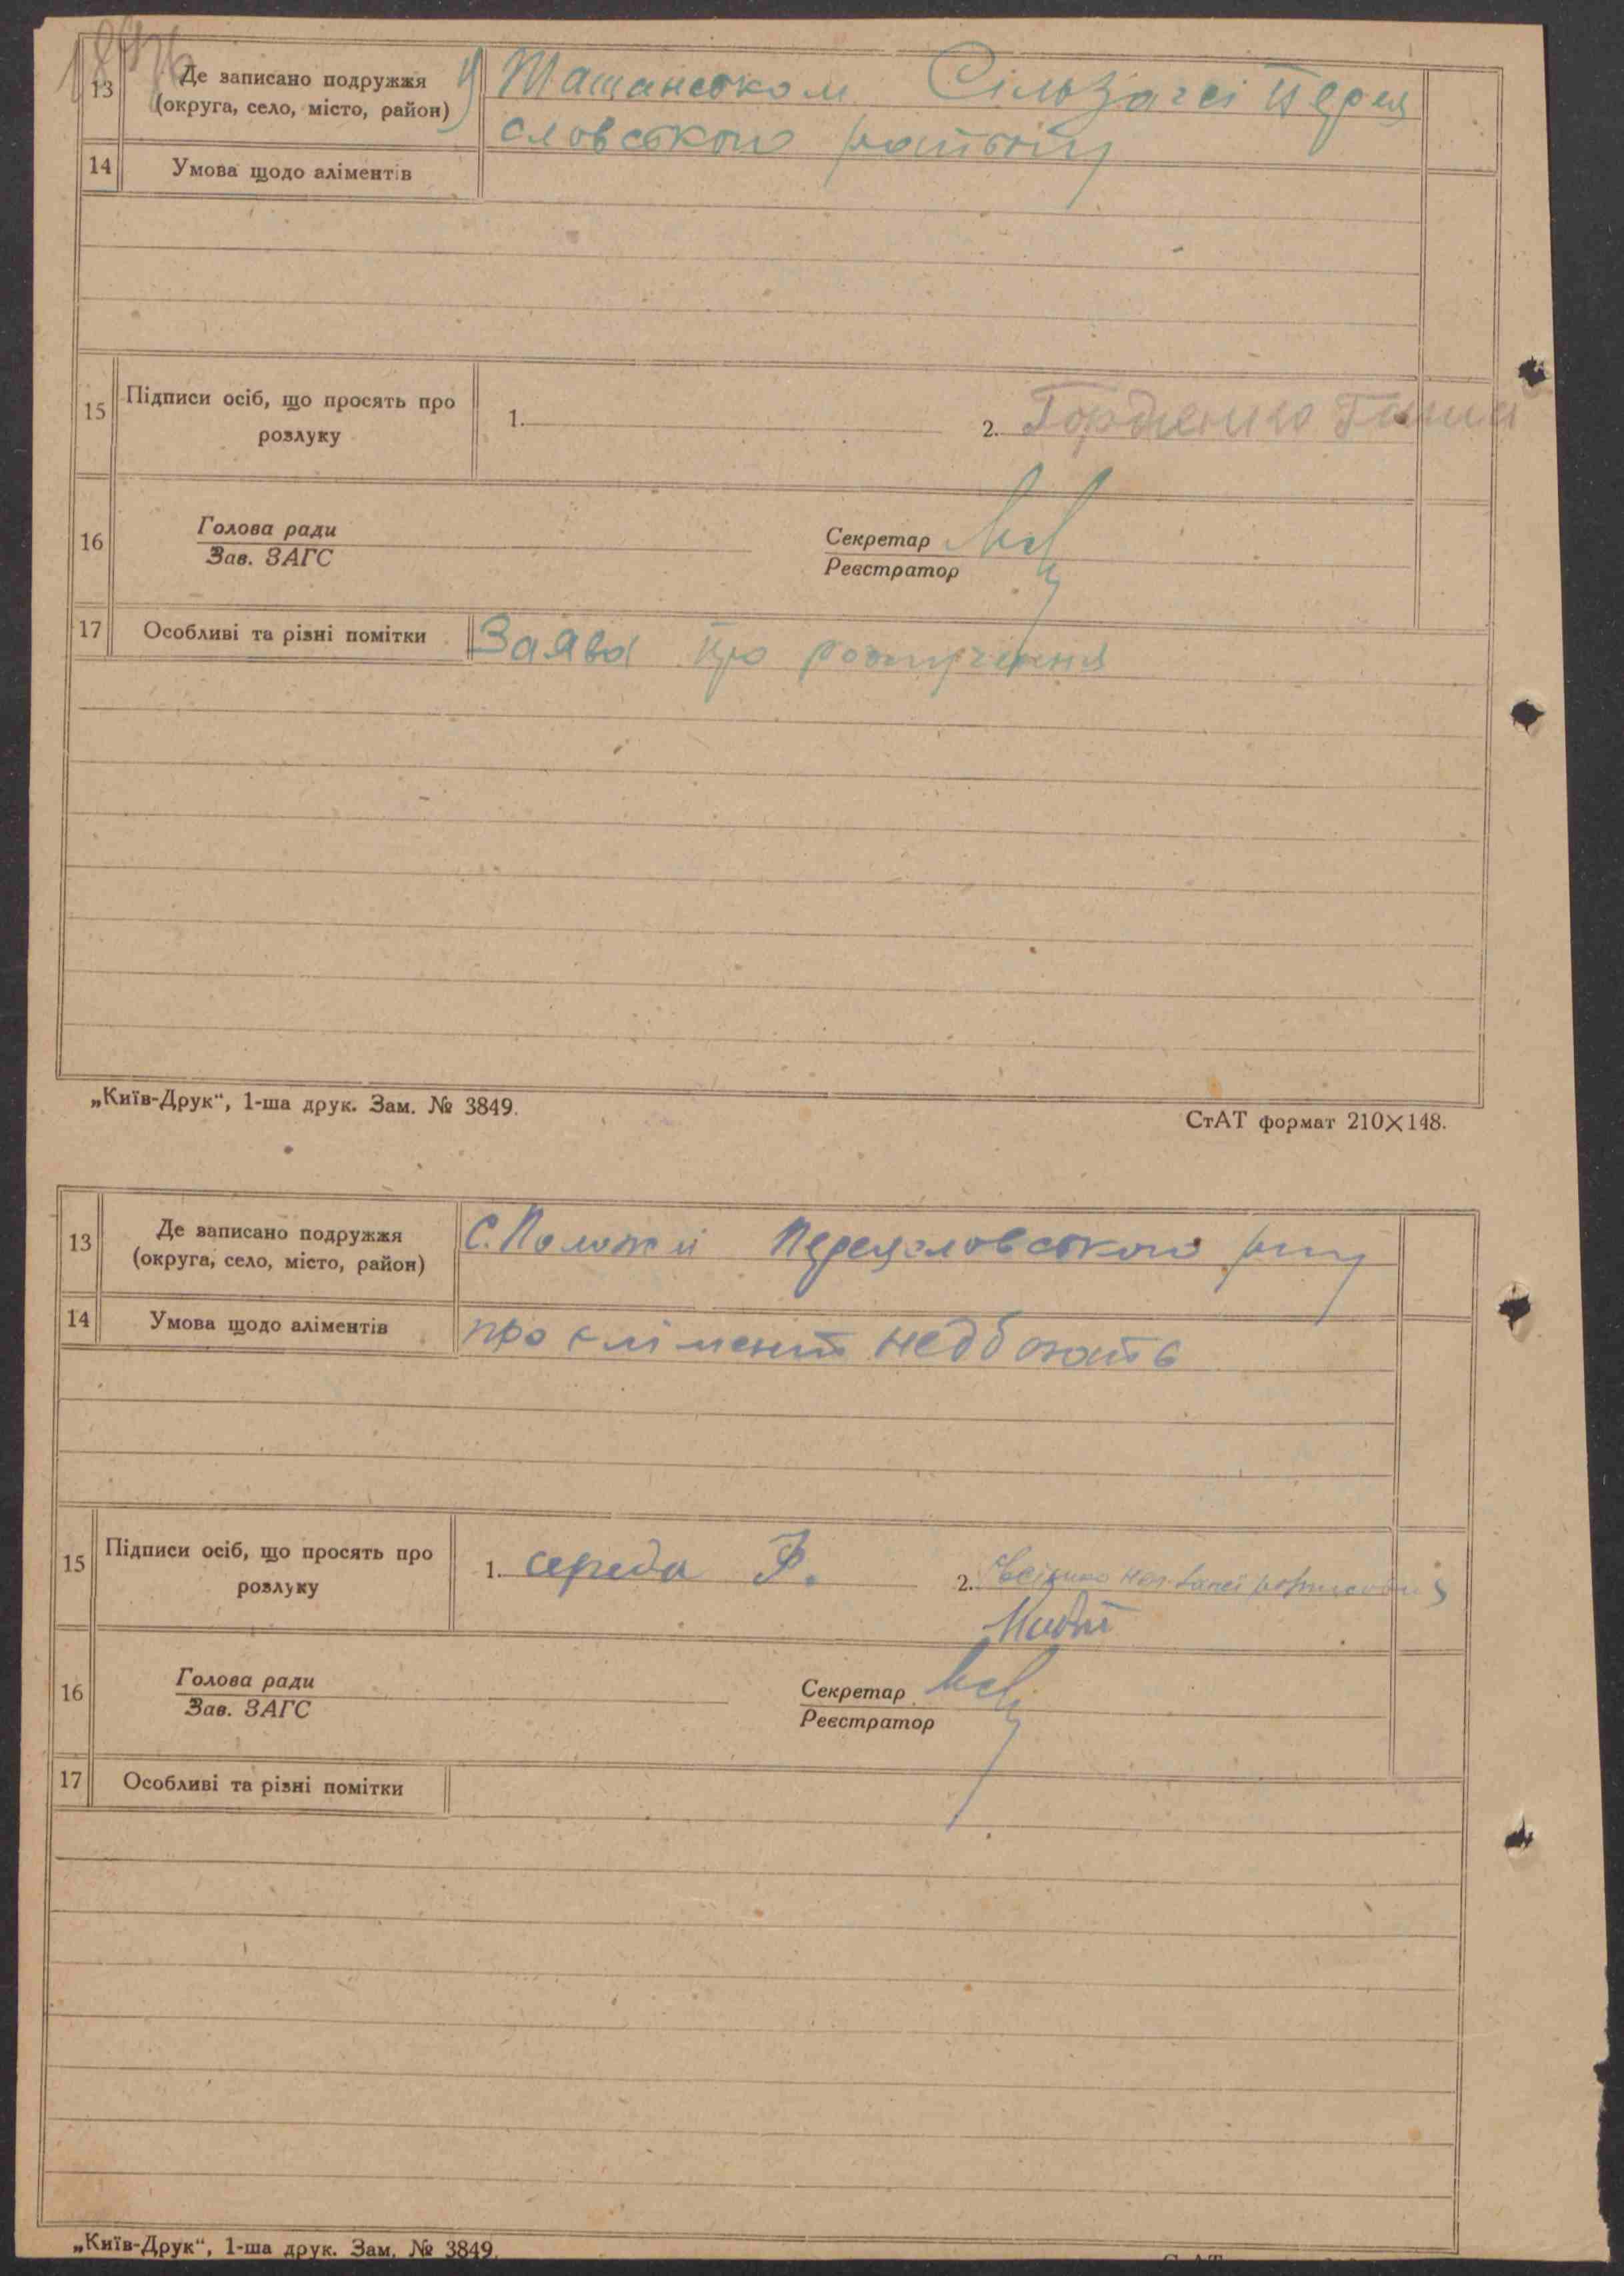 13
Де записано подружжя
(округа, село, місто, район)
у Ташанськом Сільзагсі Перея
словського району
14
Умова щодо аліментів
15
Підписи осіб, що просять про
розлуку
1.
2. Гордиенко Ганна
16
Голова ради
Зав. ЗАГС
Секретар
Реєстратор
17
Особливі та різні помітки
Заява про розлучення
„Київ-Друк“, 1-ша друк. Зам. № 3849.
СтАТ формат 210×148.
13
Де записано подружжя
(округа, село, місто, район)
С. Положаї Переясловського р-ну
14
Умова щодо аліментів
про алімент недбають
15
Підписи осіб, що просять про
розлуку
1. середа Ф.
2.
16
Голова ради
Зав. ЗАГС
Секретар
Реєстратор
17
Особливі та різні помітки
„Київ-Друк“, 1-ша друк. Зам. № 3849.